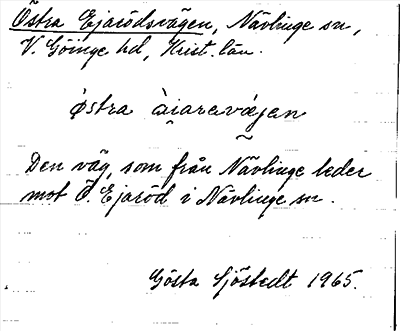 Östra Ejarödsvägen, Nävlinge sn,
V. Göinge hd, Krist. län.
östra äiarevæjen
Den väg, som från Nävlinge leder
mot Ö. Ejaröd i Nävlinge sn.
Gösta Sjöstedt 1965.